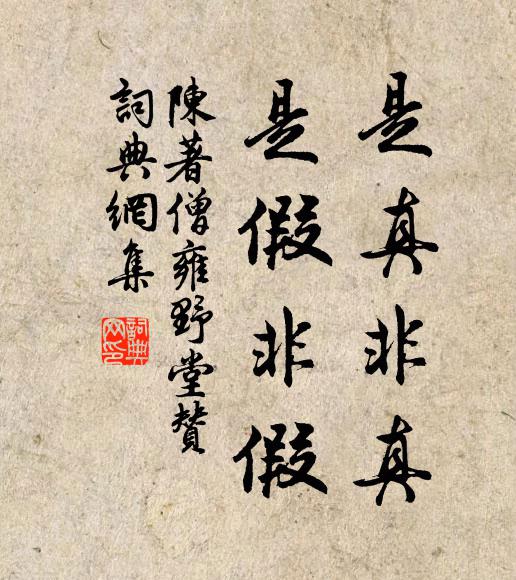 是真非真
是假非假
陳著僧雍野堂贊
詞典網集
詞典
网印